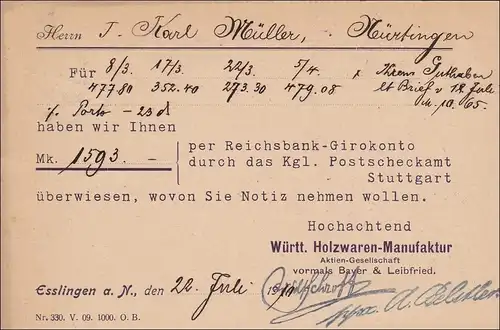 Herrn J. Karl Müller, Nürtingen
Für 8/3. 17/3. 22/3. 5/4. Ihrem Guthaben
477.80 352.40 273.30 479.08 lt Brief v. 18. Juli
Porto -23 M. 10.65.
haben wir Ihnen
Mk. 1593.- per Reichsbank-Girokonto
durch das Kgl. Postscheckamt
Stuttgart
überwiesen, wovon Sie Notiz nehmen wollen.
Hochachtend
Württ. Holzwaren-Manufaktur
Aktien-Gesellschaft
vormals Bayer & Leibfried.
Esslingen a. N., den 22. Juli 19
Nr. 330. V. 09. 1000. O. B.